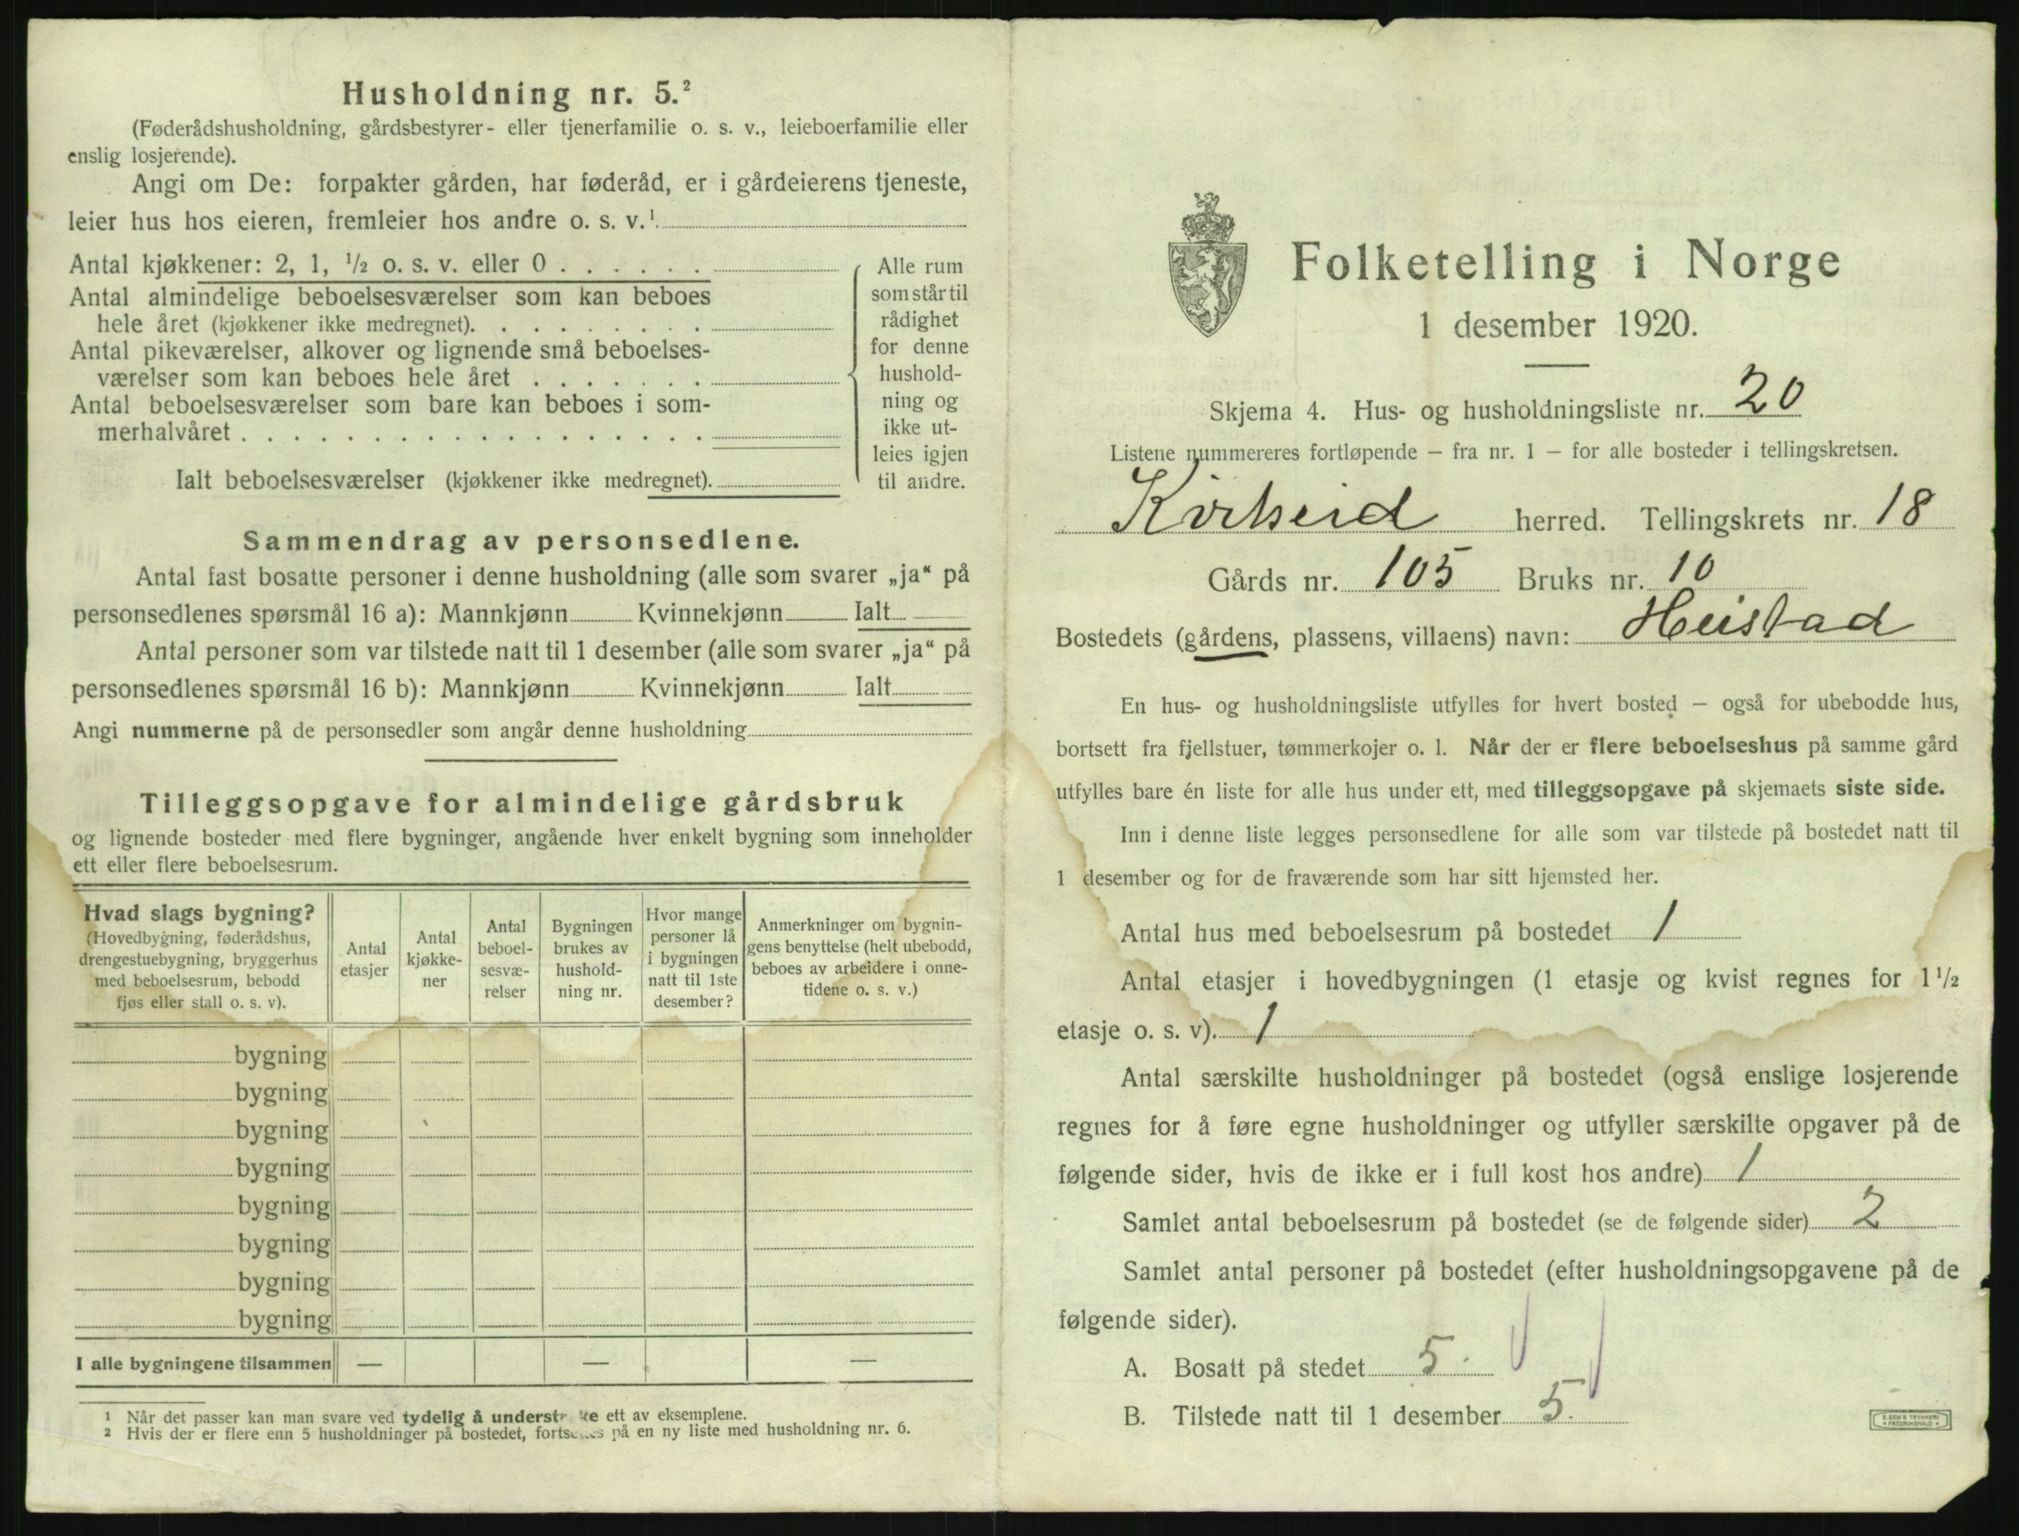 Husholdning nr. 5.²
(Føderådshusholdning, gårdsbestyrer- eller tjenerfamilie o. s. v., leieboerfamilie eller
enslig losjerende).
Angi om De: forpakter gården, har føderåd, er i gårdeierens tjeneste,
leier hus hos eieren, fremleier hos andre o. s. v.¹
Antal kjøkkener: 2, 1, ½ o. s. v. eller 0 . . . . . .
Antal almindelige beboelsesværelser som kan beboes
hele året (kjøkkener ikke medregnet). . . . . . . . .
Antal pikeværelser, alkover og lignende små beboelses-
værelser som kan beboes hele året . . . . . . .
Antal beboelsesværelser som bare kan beboes i som-
merhalvåret . . . . . . . . . . . . . . . . . .
Ialt beboelsesværelser (kjøkkener ikke medregnet).
Alle rum
som står til
rådighet
for denne
hushold-
ning og
ikke ut-
leies igjen
til andre.
Sammendrag av personsedlene.
Antal fast bosatte personer i denne husholdning (alle som svarer „ja“ på
personsedlenes spørsmål 16 a): Mannkjønn Kvinnekjønn Ialt
Antal personer som var tilstede natt til 1 desember (alle som svarer „ja“ på
personsedlenes spørsmål 16 b): Mannkjønn Kvinnekjønn Ialt
Angi nummerne på de personsedler som angår denne husholdning
Tilleggsopgave for almindelige gårdsbruk
og lignende bosteder med flere bygninger, angående hver enkelt bygning som inneholder
ett eller flere beboelsesrum.
Hvad slags bygning?
(Hovedbygning, føderådshus,
drengestuebygning, bryggerhus
med beboelsesrum, bebodd
fjøs eller stall o. s. v).
Antal
etasjer
Antal
kjøkke-
ner
Antal
beboel-
sesvæ-
relser
Bygningen
brukes av
hushold-
ning nr.
Hvor mange
personer lå
i bygningen
natt til 1ste
desember?
Anmerkninger om bygnin-
gens benyttelse (helt ubebodd,
beboes av arbeidere i onne-
tidene o. s. v.)
bygning
bygning
bygning
bygning
bygning
bygning
bygning
bygning
I alle bygningene tilsammen — — —
1 Når det passer kan man svare ved tydelig å underst ke ett av eksemplene.
2 Hvis der er flere enn 5 husholdninger på bostedet, forts es på en ny liste med husholdning nr. 6.
Folketelling i Norge
1 desember 1920.
Skjema 4. Hus- og husholdningsliste nr. 20
Listene nummereres fortløpende – fra nr. 1 – for alle bosteder i tellingskretsen.
Kviteseid herred. Tellingskrets nr. 18
Gårds nr. 105 Bruks nr. 10
Bostedets (gårdens, plassens, villaens) navn: Heistad
En hus- og husholdningsliste utfylles for hvert bosted – også for ubebodde hus,
bortsett fra fjellstuer, tømmerkojer o. l. Når der er flere beboelseshus på samme gård
utfylles bare én liste for alle hus under ett, med tilleggsopgave på skjemaets siste side.
Inn i denne liste legges personsedlene for alle som var tilstede på bostedet natt til
1 desember og for de fraværende som har sitt hjemsted her.
Antal hus med beboelsesrum på bostedet 1
Antal etasjer i hovedbygningen (1 etasje og kvist regnes for 1½
etasje o. s. v). 1
Antal særskilte husholdninger på bostedet (også enslige losjerende
regnes for å føre egne husholdninger og utfyller særskilte opgaver på de
følgende sider, hvis de ikke er i full kost hos andre) 1
Samlet antal beboelsesrum på bostedet (se de følgende sider) 2
Samlet antal personer på bostedet (efter husholdningsopgavene på de
følgende sider).
A. Bosatt på stedet 5.
B. Tilstede natt til 1 desember 5.
E. SEM'S TRYKKERI
• FREDRIKSHALD •